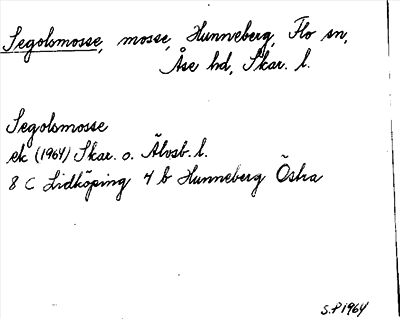 Segolsmosse, mosse, Hunneberg, Flo sn,
Åse hd, Skar. l.
Segolsmosse
ek (1964) Skar. o. Älvsb. l.
8 C Lidköping 4 b Hunneberg Östra
S.P 1964